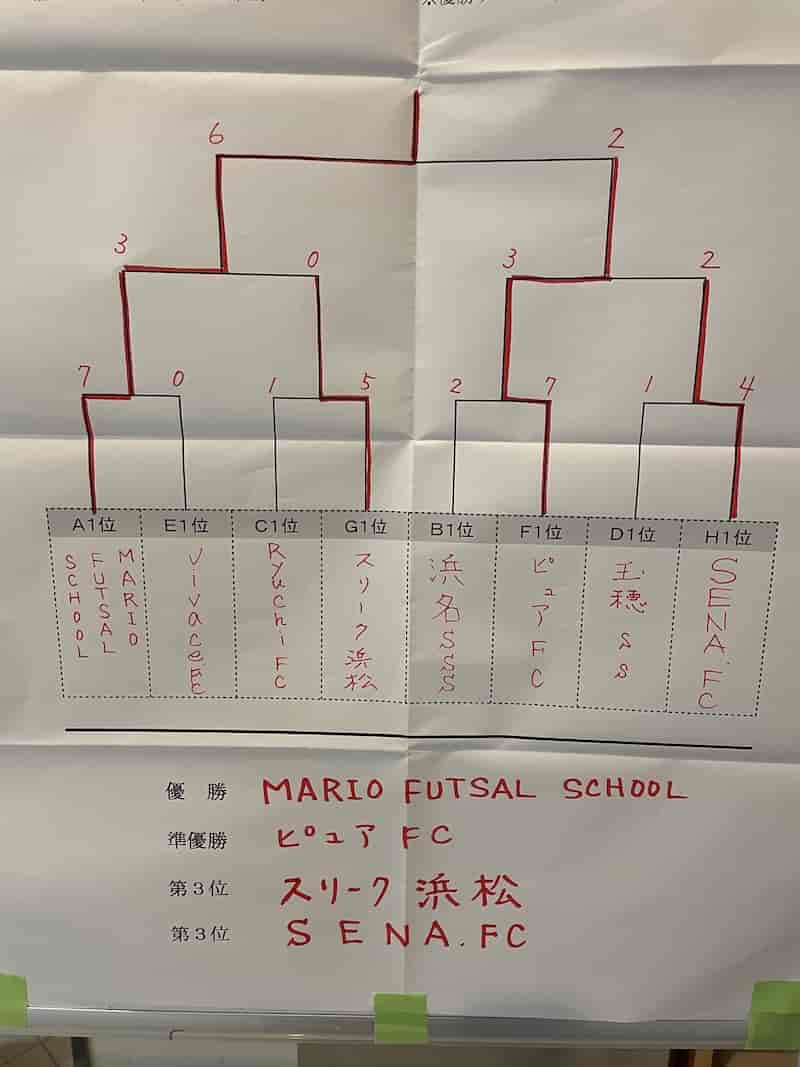 6 2
3 0 3 2
7 0 1 5 2 7 1 4
A1位 E1位 C1位 G1位 B1位 F1位 D1位 H1位
MARIO FUTSAL SCHOOL
VivaceFC
RyuchiFC
スリーク浜松
浜名SSS
ピュアFC
玉穂SS
SENA.FC
優 勝 MARIO FUTSAL SCHOOL
準優勝 ピュア FC
第3位 スリーク浜松
第3位 SENA.FC